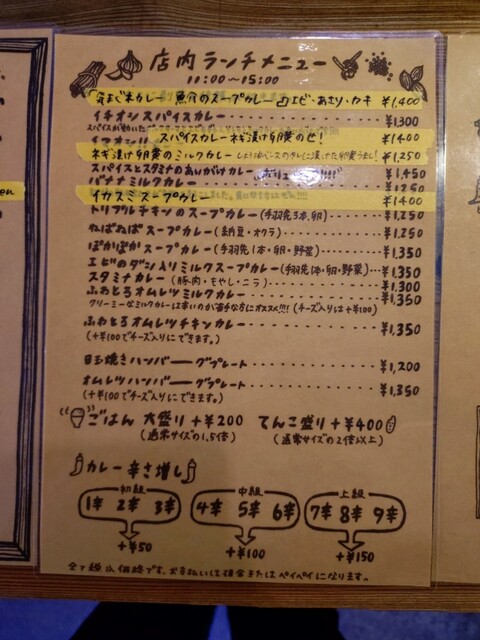 店内ランチメニュー
11:00〜15:00
気まぐれカレー 魚介のスープカレー エビ・あさり・カキ ¥1,400
イチオシスパイスカレー ¥1,300
スパイスカレーネギ漬け卵黄のせ! ¥1400
ネギ漬け卵黄のミルクカレー ¥1,250
スパイスとスタミナのあいがけカレー ¥1,450
バナナミルクカレー ¥1250
イカスミスープカレー ¥1400
トリプルチキンのスープカレー(手羽先3本、卵) ¥1,250
ねばねばスープカレー(納豆・オクラ) ¥1,250
ぽかぽかスープカレー(手羽先1本・卵・野菜) ¥1,350
エビのダシ入りミルクスープカレー(手羽先1本・卵・野菜) ¥1,350
スタミナカレー(豚肉・もやし・ニラ) ¥1,300
ふわとろオムレツミルクカレー ¥1,350
クリーミーなミルクカレーは辛いのが苦手な方にオススメ!!!(チーズ入りは+¥100)
ふわとろオムレツチキンカレー ¥1,350
(+¥100でチーズ入りにできます。)
目玉焼きハンバーグプレート ¥1,200
オムレツハンバーグプレート ¥1,350
(+¥100でチーズ入りにできます。)
ごはん 大盛り+¥200 てんこ盛り+¥400
(通常サイズの1.5倍) (通常サイズの2倍以上)
カレー辛さ増し
初級 中級 上級
1辛 2辛 3辛 4辛 5辛 6辛 7辛 8辛 9辛
+¥50 +¥100 +¥150
全て税込価格です。お支払いは現金またはペイペイになります。